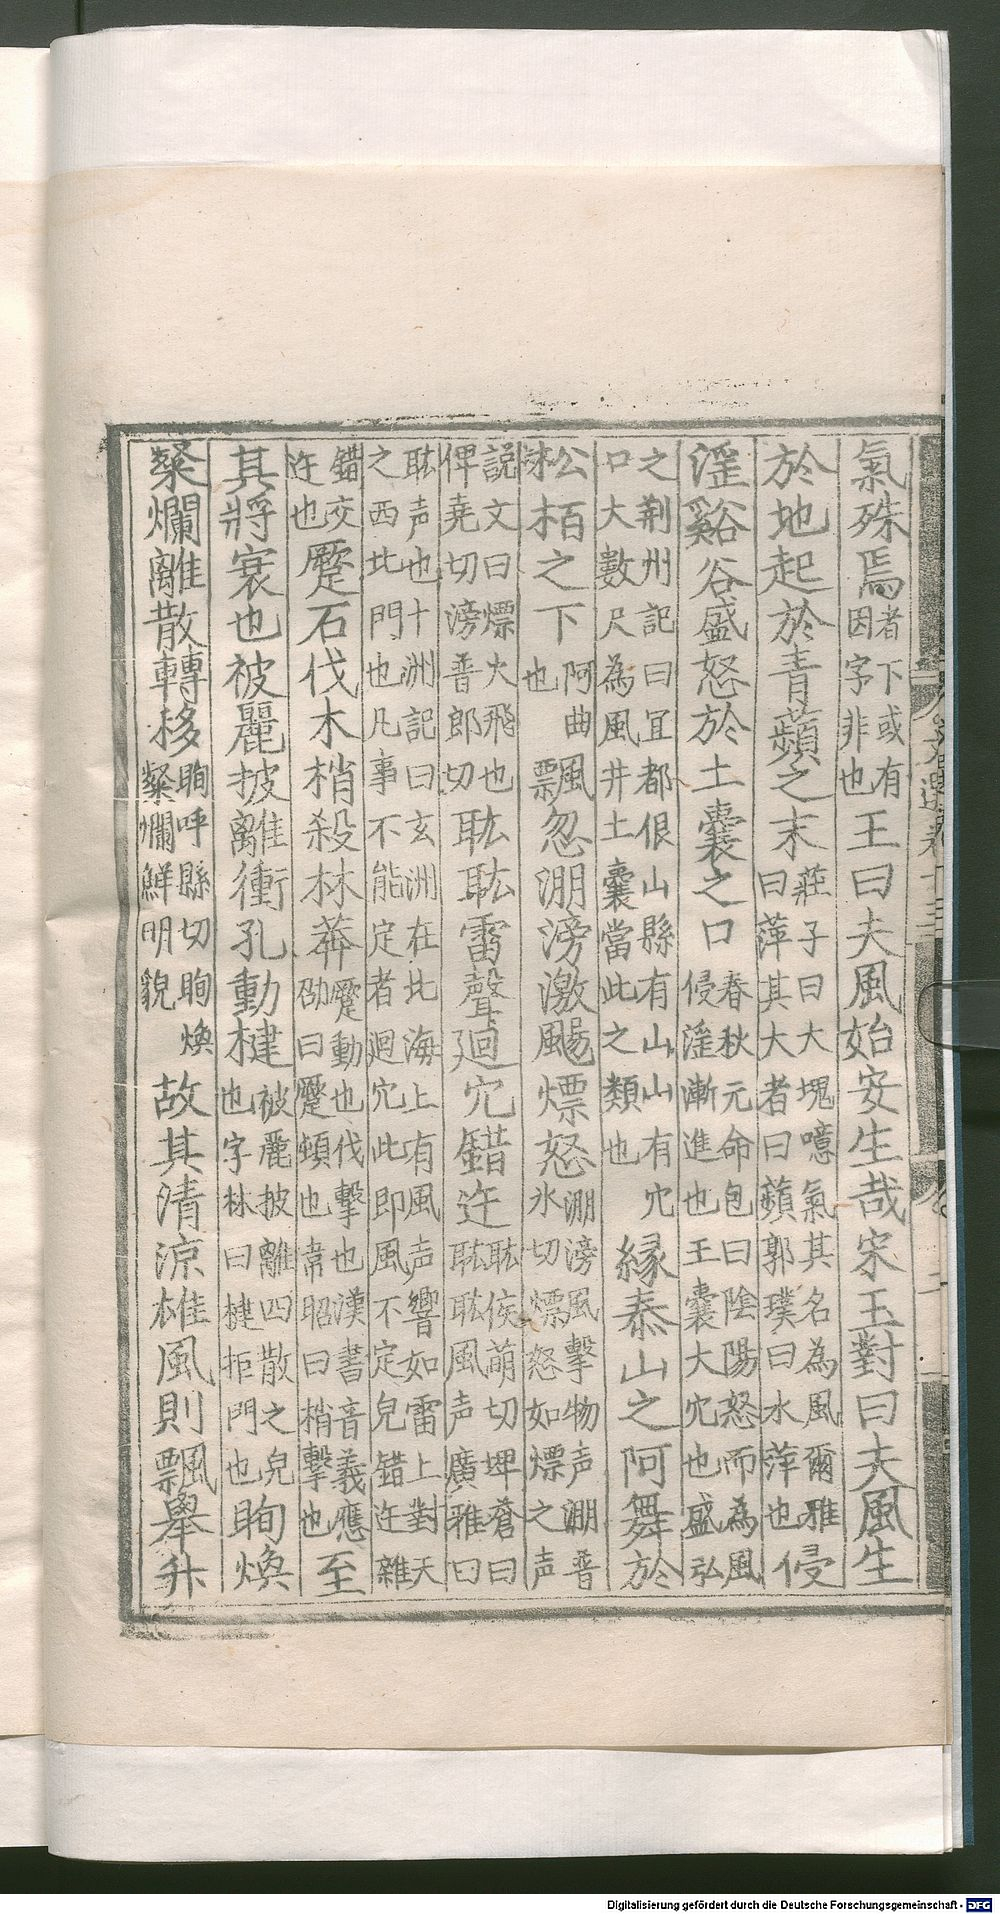 氣殊焉者下或有因字非也王曰夫風始安生哉宋玉對曰夫風生
於地起於青蘋之末莊子曰大塊噫氣其名為風爾雅曰萍其大者曰蘋郭璞曰水萍也侵
淫谿谷盛怒於土囊之口春秋元命包曰陰陽怒而為風侵淫漸進也王囊大穴也盛弘
之荆州記曰宜都佷山縣有山山有穴口大數尺為風井土囊當此之類也緣泰山之阿舞於
松栢之下阿曲也飄忽淜滂激颺熛怒淜滂風擊物声淜普氷切熛怒如熛之声
説文曰熛火飛也俾堯切滂普郎切耾耾雷聲廻穴錯迕耾耾侯萌切埤蒼曰耾風声廣雅曰
耾声也十洲記曰玄洲在北海上有風声響如雷上對天之西北門也凡事不能定者廻穴此即風不定皃錯迕雜
錯交迕也蹷石伐木梢殺林莽蹷動也伐擊也漢書音義應劭曰蹷頓也韋昭曰梢擊也至
其將衰也被麗披離衝孔動楗被麗披離四散之皃也字林曰楗拒門也眴煥
粲爛離散轉移眴呼縣切眴煥粲爛鮮明貌故其清凉雄風則飄舉升
文選卷十三
二
Digitalisierung gefördert durch die Deutsche Forschungsgemeinschaft - DFG